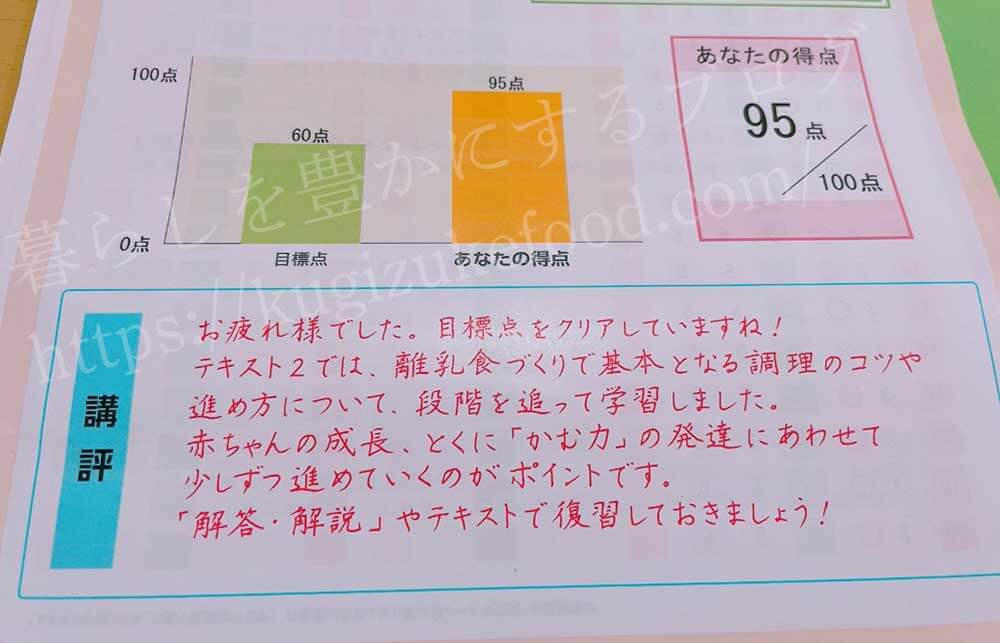 100点
95点
60点
0点
目標点
あなたの得点
あなたの得点
95点
100点
講評
お疲れ様でした。目標点をクリアしていますね!
テキスト2では、離乳食づくりで基本となる調理のコツや
進め方について、段階を追って学習しました。
赤ちゃんの成長、とくに「かむ力」の発達にあわせて
少しずつ進めていくのがポイントです。
「解答・解説」やテキストで復習しておきましょう!
暮らしを豊かにするブログ
https://kugizukefood.com/